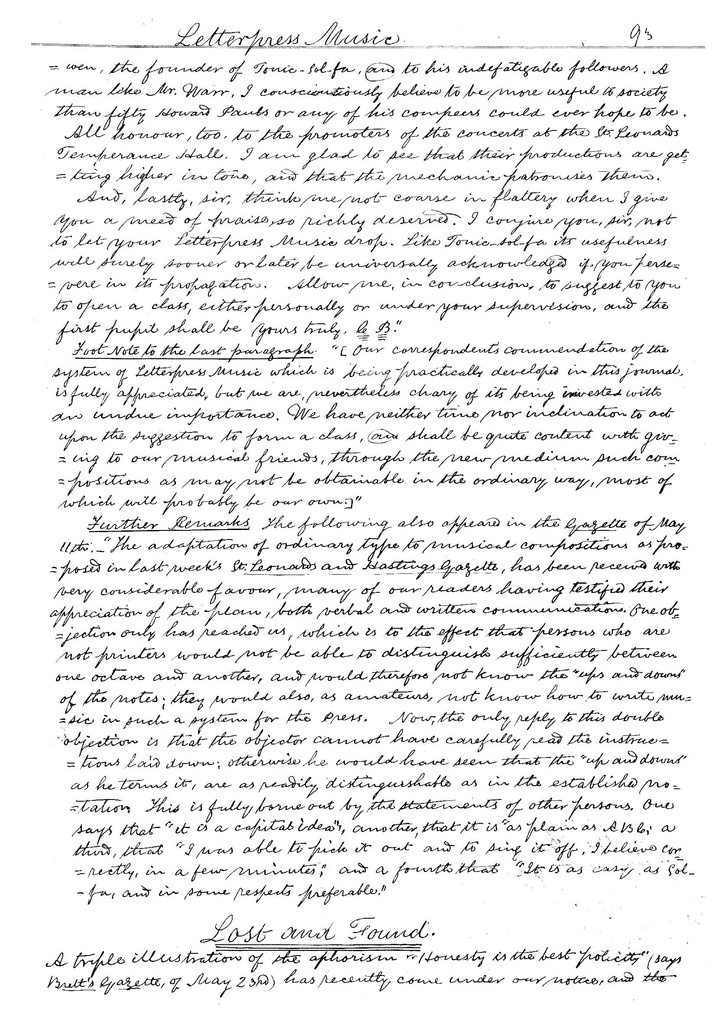 Letterpress Music. 93
= wen, the founder of Tonic-Sol-fa, and to his indefatigable followers. A
man like Mr. Warr, I conscientiously believe to be more useful to society
than fifty Howard Pauls or any of his compeers could ever hope to be.
All honour, too, to the promoters of the concerts at the St. Leonards
Temperance Hall. I am glad to see that their productions are get-
=ting higher in tone, and that the mechanic patronises them.
And, lastly, sir, think me not coarse in flattery when I give
you a meed of praise, so richly deserved. I conjure you, sir, not
to let your Letterpress Music drop. Like Tonic-sol-fa its usefulness
will surely sooner or later be universally acknowledged if you perse=
=vere in its propagation. Allow me, in conclusion, to suggest to you
to open a class, either personally or under your supervision, and the
first pupil shall be yours truly, G B."
Foot Note to the last paragraph. "[Our correspondents commendation of the
system of Letterpress Music which is being practically developed in this journal,
is fully appreciated, but we are, nevertheless chary of its being invested with
an undue importance. We have neither time nor inclination to act
upon the suggestion to form a class, an shall be quite content with giv=
=ing to our musical friends, through the new medium such com
=positions as may not be obtainable in the ordinary way, most of
which will probably be our own.]"
Further Remarks The following also appeared in the Gazette of May
11th:_ "The adaptation of ordinary type to musical compositions as pro=
=posed in last week's St. Leonards and Hastings Gazette, has been received with
very considerable favour, many of our readers having testified their
appreciation of the plan, both verbal and written communication. One ob=
=jection only has reached us, which is to the effect that persons who are
not printers would not be able to distinguish sufficiently between
one octave and another, and would therefore not know the "ups and downs"
of the notes; they would also, as amateurs, not know how to write mu=
=sic in such a system for the Press. Now, the only reply to this double
objection is that the objector cannot have carefully read the instruc=
=tions laid down; otherwise he would have seen that the "up and downs"
as he terms it, are as readily distinguishable as in the established no=
=tation. This is fully borne out by the statements of other persons. One
says that "it is a capital idea", another, that it is "as plain as A B C; a
third, that "I was able to pick it out and to sing it off, I believe cor=
=rectly, in a few minutes"; and a fourth that "It is as easy as Sol-
-fa, and in some respects preferable."
Lost and Found.
A triple illustration of the aphorism "Honesty is the best policity" (says
Brett's Gazette, of May 23rd) has recently come under our notice, and the